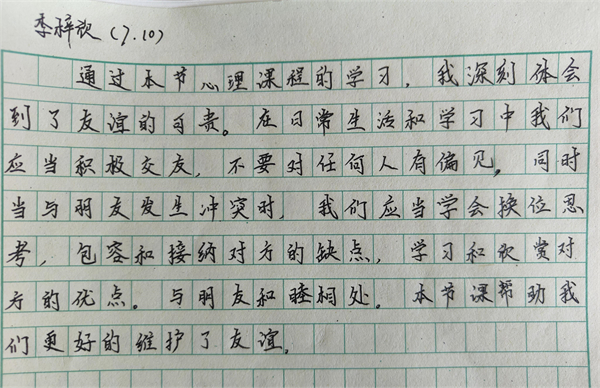 李梓欢(7.10)
通过本节心理课程的学习,我深刻体会
到了友谊的可贵。在日常生活和学习中我们
应当积极交友,不要对任何人有偏见。同时
当与朋友发生冲突时,我们应当学会换位思
考,包容和接纳对方的缺点,学习和欣赏对
方的优点。与朋友和睦相处。本节课帮助我
们更好的维护了友谊。